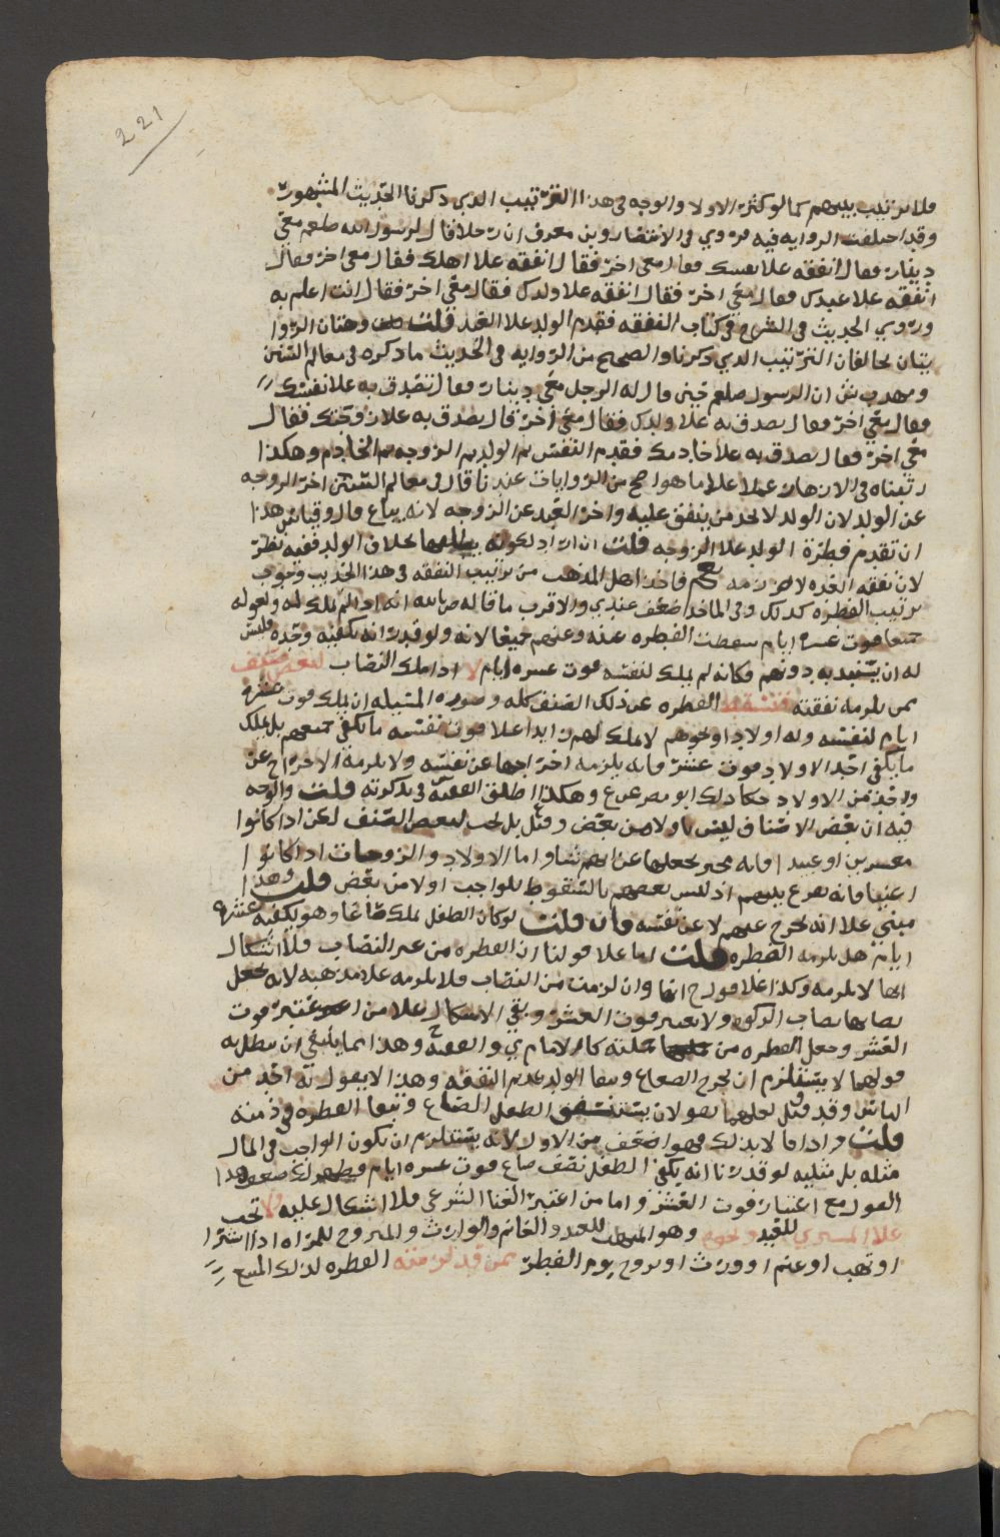 221
فلا ترتيب بينهم كما لو كثر الاولاد والوجه في هذا الترتيب الذي ذكرنا الحديث المشهور
وقد اختلفت الروايه فيه فروي في الانتصار وبن معرف ان رجلا قال لرسول الله صلعم معي
دينار فقال انفقه علا نفسك فقال معي اخر فقال انفقه علا اهلك فقال معي اخر فقال
انفقه علا عبدك فقال معي اخر فقال انفقه علا ولدك فقال معي اخر فقال انت اعلم به
وروي الحديث في الشرح في كتاب النفقه فقدم الولد علا العبد قلت وهتان الروا
يتان يخالفان الترتيب الذي ذكرنا والصحيح من الروايه في الحديث ما ذكره في معالم السنن
وهو ان الرسول صلعم حين قال له الرجل معي دينار فقال تصدق به علا نفسك
فقال معي اخر فقال تصدق به علا ولدك فقال معي اخر قال تصدق به علا زوجتك فقال
معي اخر فقال تصدق به علا خادمك فقدم النفس ثم الولد ثم الزوجه ثم الخادم وهكذا
رتبناه في الازهار عملا علا ما هو اصح من الروايات عندنا قال في معالم السنن اخر الزوجه
عن الولد لان الولد لا يجد من ينفق عليه واخر العبد عن الزوجه لانه يباع قال وقياس هذا
ان تقدم فطرة الولد علا الزوجه قلت ان اراد لكونه بخلاف الولد ففيه نظر
لان نفقه العبد لازمه نعم فاخذ اهل المذهب من ترتيب النفقه في هذا الحديث وجوب
ترتيب الفطره كذلك وفي الماخذ ضعف عندي والاقرب ما قاله م بالله انه اذا لم يملك له ولعوله
جميعا قوت عشره ايام سقطت الفطره عنه وعنهم جميعا لانه ولو قدر انه يكفيه وحده فليس
له ان يستبد به دونهم فكانه لم يملك لنفسه قوت عشره ايام لا اذا ملك النصاب لبعض صنف
ممن يلزمه نفقته فتسقط الفطره عن ذلك الصنف كله وصوره المسئله ان يملك قوت عشره
ايام لنفسه وله اولاد او نحوهم لا يملك لهم زايدا علا قوت نفسه ما يكفي جميعهم بل يملك
ما يكفي احد الاولاد قوت عشر فانه يلزمه اخراجها عن نفسه ولا يلزمه الاخراج عن
واحد من الاولاد حكا ذلك ابو مضر عن ع وهكذا اطلق الفقيه ف في تذكرته قلت والوجه
فيه ان بعض الاصناف ليس باولا من بعض وقيل بل يجب لبعض الصنف لكن اذا كانوا
معسرين او عبيدا فانه مخير يجعلها عن ايهم شاء واما الاولاد والزوجات اذا كانوا
اغنيا فانه يقرع بينهم اذ ليس بعضهم بالسقوط للواجب اولا من بعض قلت وهذا
مبني علا انه يخرج عنهم لا عن نفسه فان قلت لو كان الطفل يملك صاعا وهو يكفيه عشره
ايام هل يلزمه الفطره قلت اما علا قولنا ان الفطره من عبر النصاب فلا اشكال
انها لا يلزمه وكذا علا قول ح انها وان لزمت من النصاب فلا يلزمه علا مذهبه لانه يجعل
نصابها نصاب الزكوه ولا يعتبر قوت العشر وبقي الاشكال علا من اعتبر قوت
العشر وجعل الفطره من جملته كالامام ي والفقيه ح وهذا مما ينبغي ان يبطل به
قولهما لا يستلزم ان يخرج الصاع ويبقا الولد عديم النفقه وهذا لا يقول به احد من
الناس وقد قيل لعلهما يقولان يستنفق الطفل الصاع وتبقا الفطره في ذمته
قلت واذا قالا بذلك فهو اضعف من الاول لانه يستلزم ان يكون الواجب في المال
مثله بل مثليه لو قدرنا انه يكفي الطفل نصف صاع قوت عشره ايام فظهر لك ضعف هذا
القول مع اعتبار قوت العشر واما من اعتبر الغنا الشرعي فلا اشكال عليه ولا تجب
علا المشتري للعبد ونحوه وهو المتهب للعبد والغانم والوارث والمتزوج للمراه اذا اشترا
او تهب او غنم او ورث او تزوج يوم الفطر ممن قد لزمته الفطره لذلك المبيع